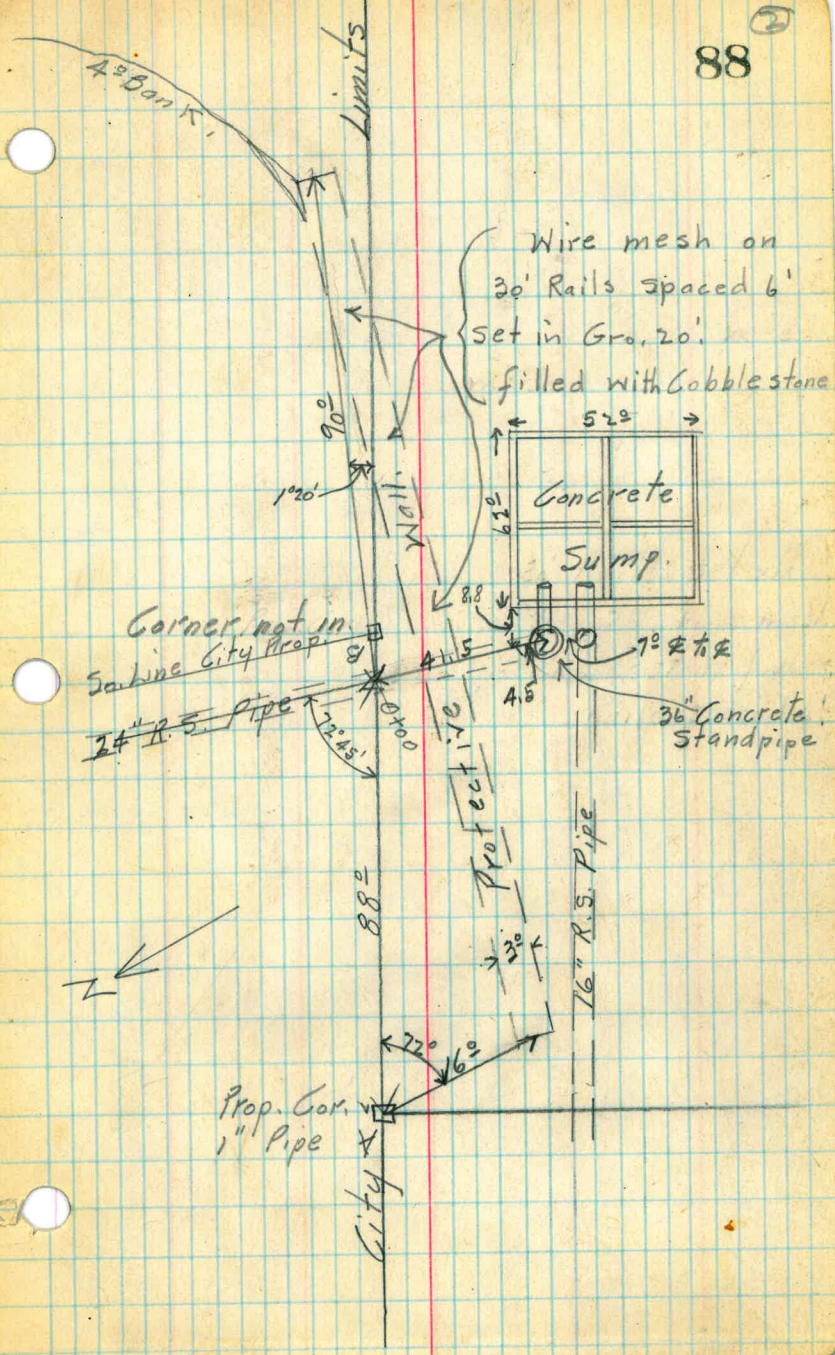 2
88
4º Bank.
Limits
Wire mesh on
30' Rails spaced 6'
set in Gro. 20'.
filled with Cobblestone
90º
1º20'
Wall.
52º
62º
Concrete
Sump.
8.8
Corner not in.
So. Line City Prop.
8
41.5
4.5
7º ⅊ to ⅊
36" Concrete
Standpipe
24" R.S. Pipe
72º45'
0+00
Protective
88º
3º
16" R.S. Pipe
Z
72º
16º
Prop. Cor.
1" Pipe
City